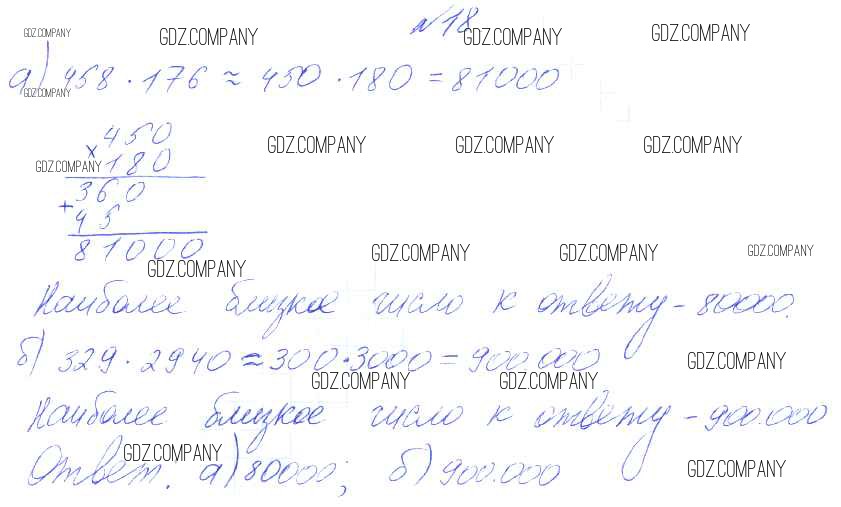 №18
GDZ.COMPANY GDZ.COMPANY GDZ.COMPANY GDZ.COMPANY
а) 458 · 176 ≈ 450 · 180 = 81000
GDZ.COMPANY
450
GDZ.COMPANY GDZ.COMPANY GDZ.COMPANY
× 180
GDZ.COMPANY
360
+ 45
81000
GDZ.COMPANY GDZ.COMPANY GDZ.COMPANY
GDZ.COMPANY
Наиболее близкое число к ответу - 80000.
б) 329 · 2940 ≈ 300 · 3000 = 900.000
GDZ.COMPANY
GDZ.COMPANY GDZ.COMPANY
Наиболее близкое число к ответу - 900.000
GDZ.COMPANY
Ответ: а) 80000; б) 900.000
GDZ.COMPANY